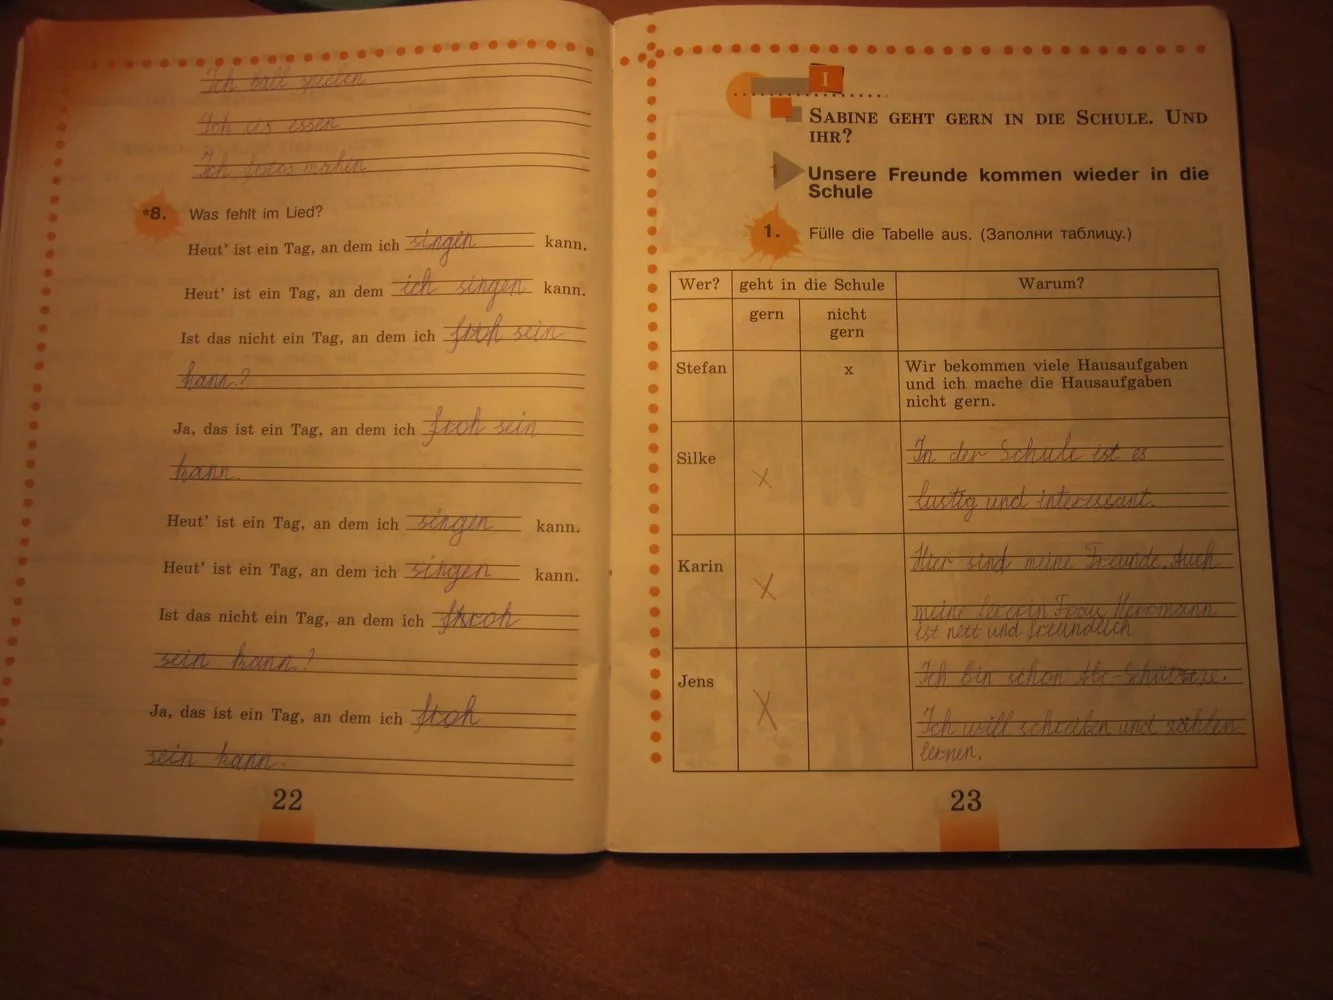 Ich ball spielen
Ich eis essen
Ich fotos mahen
*8. Was fehlt im Lied?
Heut' ist ein Tag, an dem ich singen kann.
Heut' ist ein Tag, an dem ich singen kann.
Ist das nicht ein Tag, an dem ich froh sein
kann?
Ja, das ist ein Tag, an dem ich froh sein
kann.
Heut' ist ein Tag, an dem ich singen kann.
Heut' ist ein Tag, an dem ich singen kann.
Ist das nicht ein Tag, an dem ich froh
sein kann?
Ja, das ist ein Tag, an dem ich froh
sein kann.
22
I
SABINE GEHT GERN IN DIE SCHULE. UND
IHR?
1 Unsere Freunde kommen wieder in die
Schule
1. Fülle die Tabelle aus. (Заполни таблицу.)
Wer? geht in die Schule Warum?
gern nicht
gern
Stefan x Wir bekommen viele Hausaufgaben
und ich mache die Hausaufgaben
nicht gern.
Silke x In der Schule ist es
lustig und interessant.
Karin x Hier sind meine Freunde. Auch
meine Frau Herrmann
ist nett und freundlich
Jens x Ich bin schon Abc-Schütze.
Ich will schreiben und zählen
lernen.
23